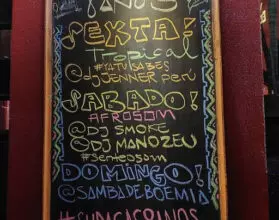 SEXTA!
Tropical
#YATUSABES
@djJENNER perú
SABADO!
AFROSOM
@DJ SMOKE
@DJ MANOZEU
#senteosom
DOMINGO!
@SAMBADEBOEMIA